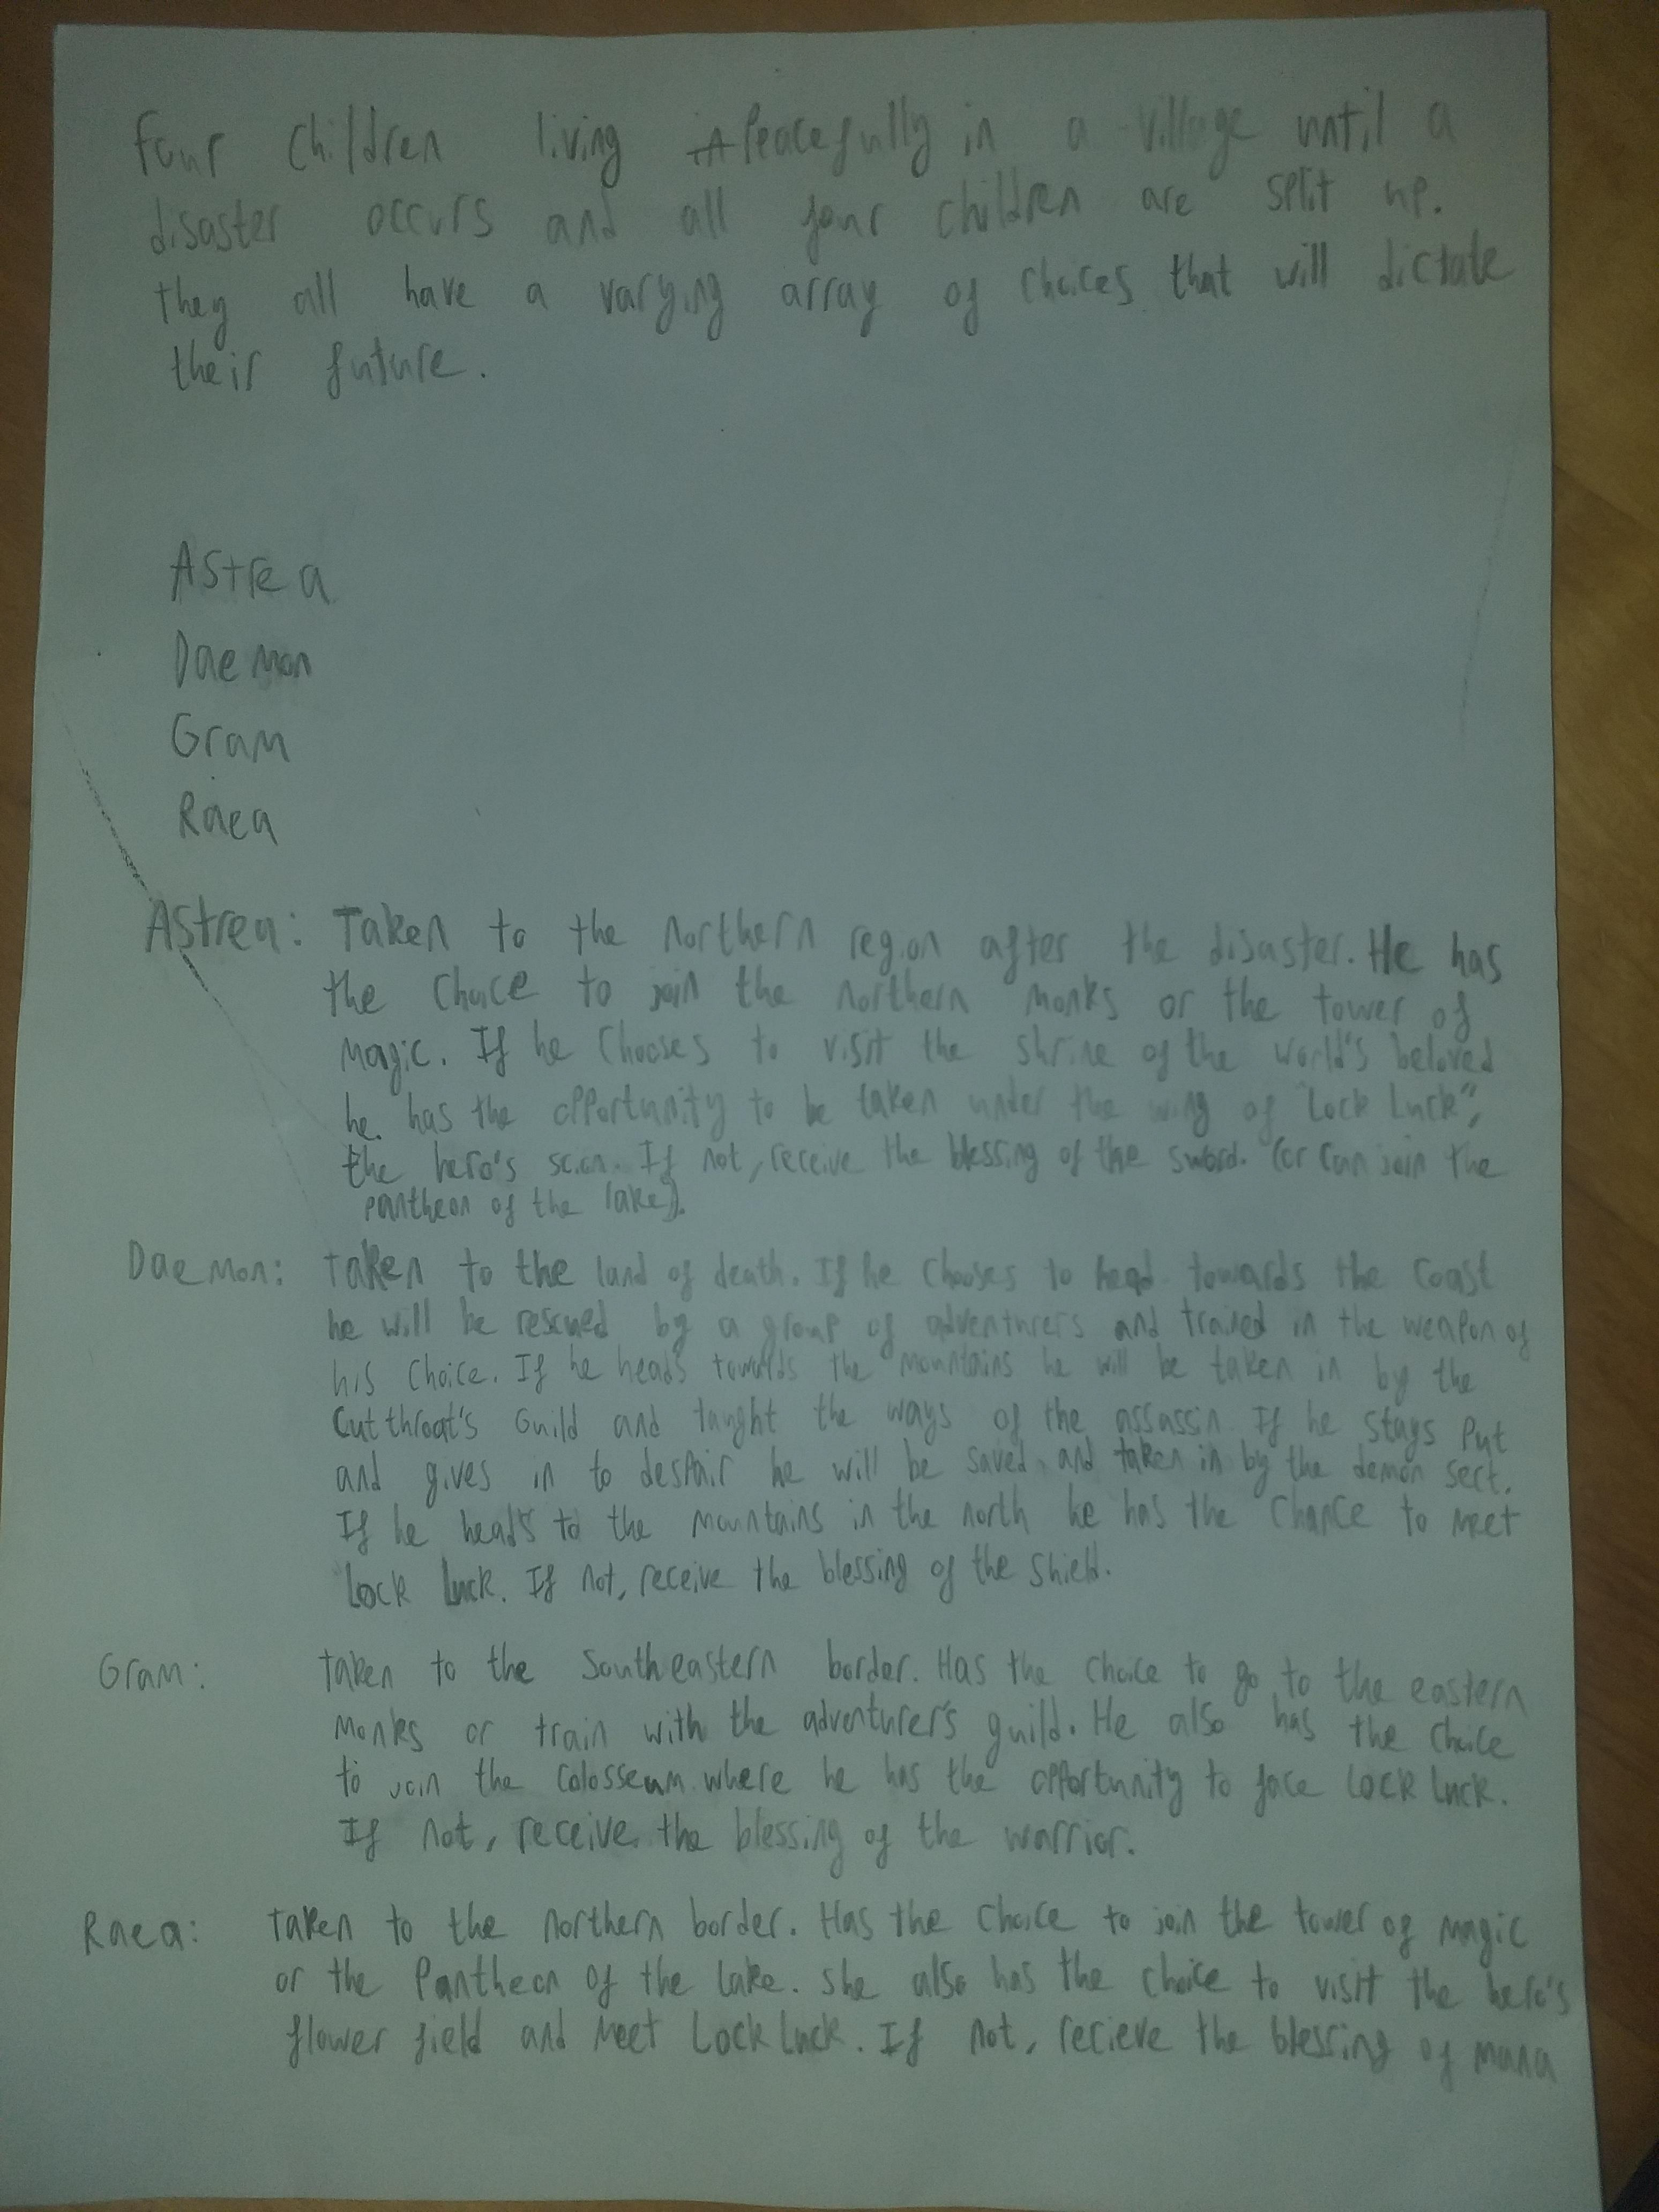 Four children living peacefully in a village until a
disaster occurs and all four children are split up.
they all have a varying array of choices that will dictate
their future.
Astrea
Daemon
Gram
Raea
Astrea: Taken to the northern region after the disaster. He has
the choice to join the northern monks or the tower of
magic. If he chooses to visit the shrine of the world's beloved
he has the opportunity to be taken under the wing of "Lock Luck",
the hero's scion. If not, receive the blessing of the sword. (or can join the
pantheon of the lake).
Daemon: taken to the land of death. If he chooses to head towards the coast
he will be rescued by a group of adventurers and trained in the weapon of
his choice. If he heads towards the mountains he will be taken in by the
Cutthroat's Guild and taught the ways of the assassin. If he stays put
and gives in to despair he will be saved and taken in by the demon sect.
If he heads to the mountains in the north he has the chance to meet
Lock Luck. If not, receive the blessing of the shield.
Gram: taken to the Southeastern border. Has the choice to go to the eastern
monks or train with the adventurer's guild. He also has the choice
to join the Colosseum where he has the opportunity to face Lock Luck.
If not, receive the blessing of the warrior.
Raea: taken to the northern border. Has the choice to join the tower of magic
or the Pantheon of the lake. She also has the choice to visit the hero's
flower field and meet Lock Luck. If not, recieve the blessing of mana